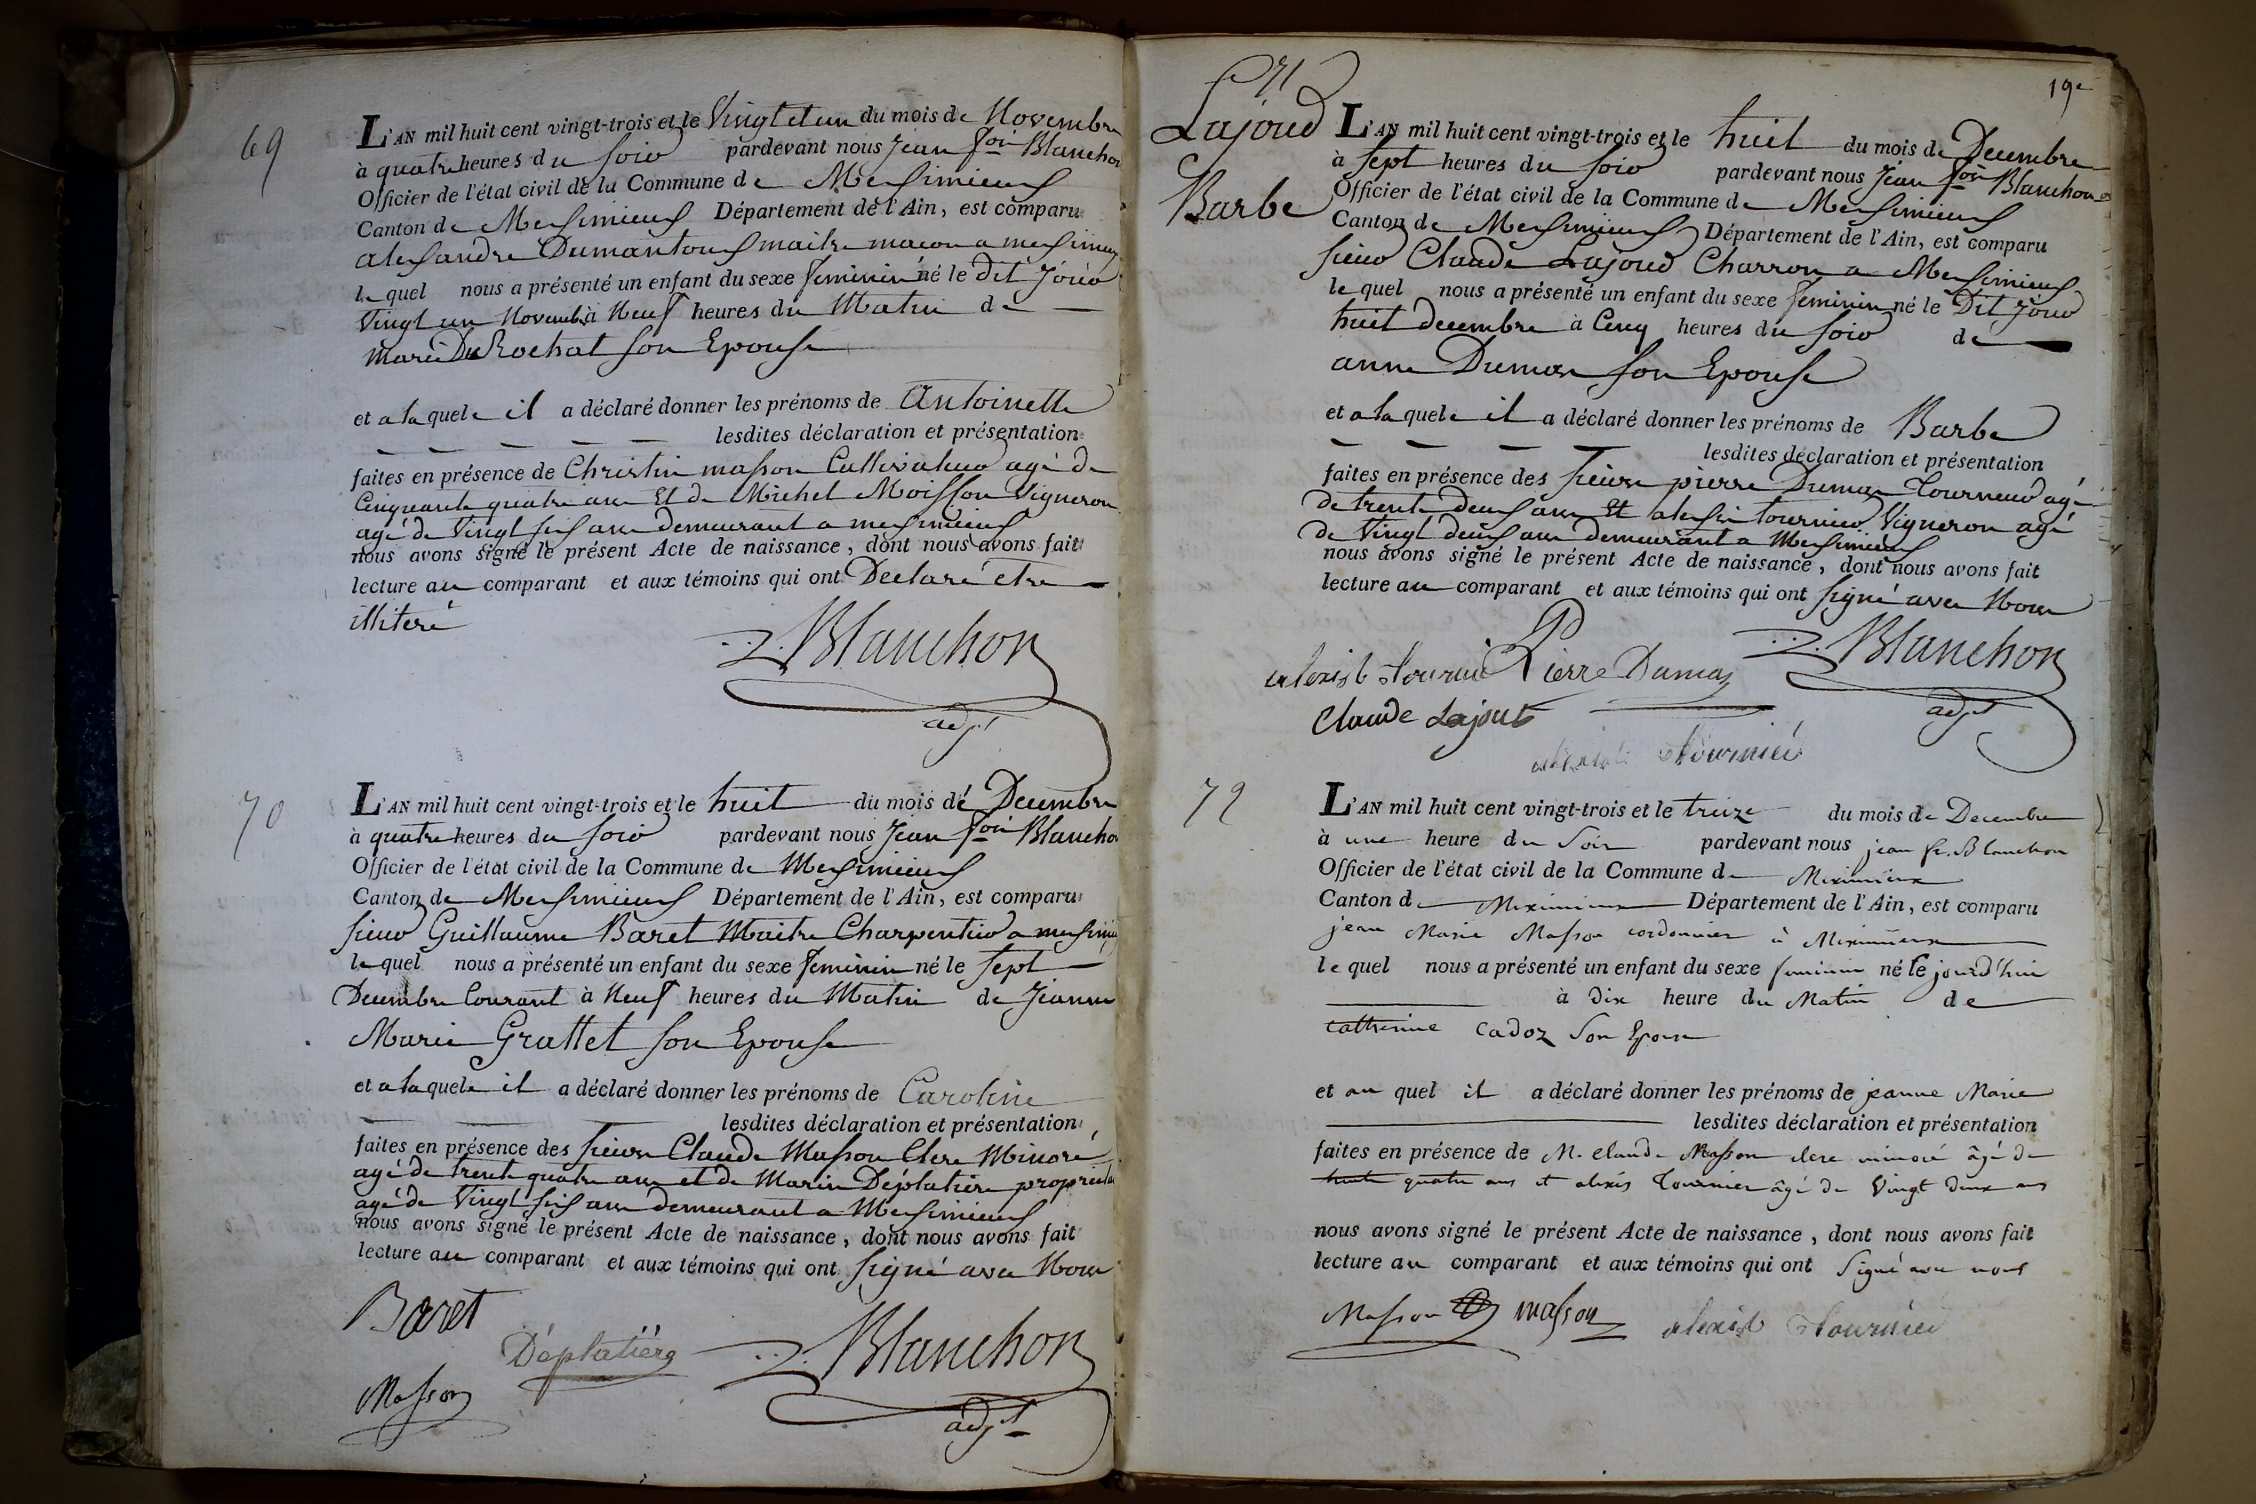 69
L'AN mil huit cent vingt-trois et le Vingt et un du mois de Novembre
à quatre heures du soir pardevant nous Jean fois Blanchon
Officier de l'état civil de la Commune de Meximieux
Canton de Meximieux Département de l'Ain, est comparu
alexandre Dumantoux maitre macon a meximieux
le quel nous a présenté un enfant du sexe feminin né le dit jour
Vingt un Novemb. à Neuf heures du Matin de
marie Du Rochat son Epouse
et a la quele il a déclaré donner les prénoms de Antoinette
lesdites déclaration et présentation
faites en présence de Christin masson Cultivateur agé de
Cinquante quatre ans Et de Michel Moisson Vigneron
agé de Vingt six ans demeurant a meximieux
nous avons signé le présent Acte de naissance, dont nous avons fait
lecture au comparant et aux témoins qui ont Declaré etre
illiteré
Blanchon
adjt
70
L'AN mil huit cent vingt-trois et le huit du mois de Decembre
à quatre heures du soir pardevant nous Jean fois Blanchon
Officier de l'état civil de la Commune de Meximieux
Canton de Meximieux Département de l'Ain, est comparu
sieur Guillaume Baret Maitre Charpentier a meximieux
le quel nous a présenté un enfant du sexe feminin né le sept
Decembre Courant à Neuf heures du Matin de Jeanne
Marie Grattet son Epouse
et a la quele il a déclaré donner les prénoms de Caroline
lesdites déclaration et présentation
faites en présence des sieurs Claude Masson Clerc Minoré
agé de trente quatre ans et de Marin Déplatière propriétai
agé de Vingt six ans demeurant a Meximieux
nous avons signé le présent Acte de naissance, dont nous avons fait
lecture au comparant et aux témoins qui ont signé avec Nous
Baret
Déplatière
Blanchon
Masson
adjt
19e
71
Lajoud
Barbe
L'AN mil huit cent vingt-trois et le huit du mois de Decembre
à sept heures du soir pardevant nous Jean fois Blanchon
Officier de l'état civil de la Commune de Meximieux
Canton de Meximieux Département de l'Ain, est comparu
sieur Claude Lajoud Charron a Meximieux
le quel nous a présenté un enfant du sexe feminin né le Dit jour
huit decembre à Cinq heures du soir de
anne Dumas son Epouse
et a la quele il a déclaré donner les prénoms de Barbe
lesdites déclaration et présentation
faites en présence des sieurs pierre Dumas Tourneur agé
de trente deux ans Et alexis tournier Vigneron agé
de Vingt deux ans demeurant a Meximieux
nous avons signé le présent Acte de naissance, dont nous avons fait
lecture au comparant et aux témoins qui ont signé avec Nous
Pierre Dumas
Blanchon
Claude Lajout
adjt
72
L'AN mil huit cent vingt-trois et le treize du mois de Decembre
à une heure du Soir pardevant nous jean fr. Blanchon
Officier de l'état civil de la Commune de Meximieux
Canton de Meximieux Département de l'Ain, est comparu
jean Marie Masson cordonnier à Meximieux
le quel nous a présenté un enfant du sexe feminin né le jourd'hui
à dix heure du Matin de
catherine Cadoz Son Epouse
et au quel il a déclaré donner les prénoms de jeanne Marie
lesdites déclaration et présentation
faites en présence de M. claude Masson clerc minoré âgé de
trente quatre ans et alexis Tournier âgé de Vingt deux ans
nous avons signé le présent Acte de naissance, dont nous avons fait
lecture au comparant et aux témoins qui ont Signé avec nous
Masson masson